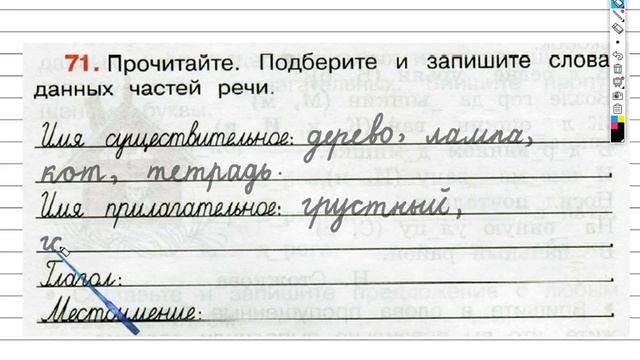 71. Прочитайте. Подберите и запишите слова
данных частей речи.
Имя существительное: дерево, лампа,
кот, тетрадь.
Имя прилагательное: грустный,
Глагол:
Местоимение: